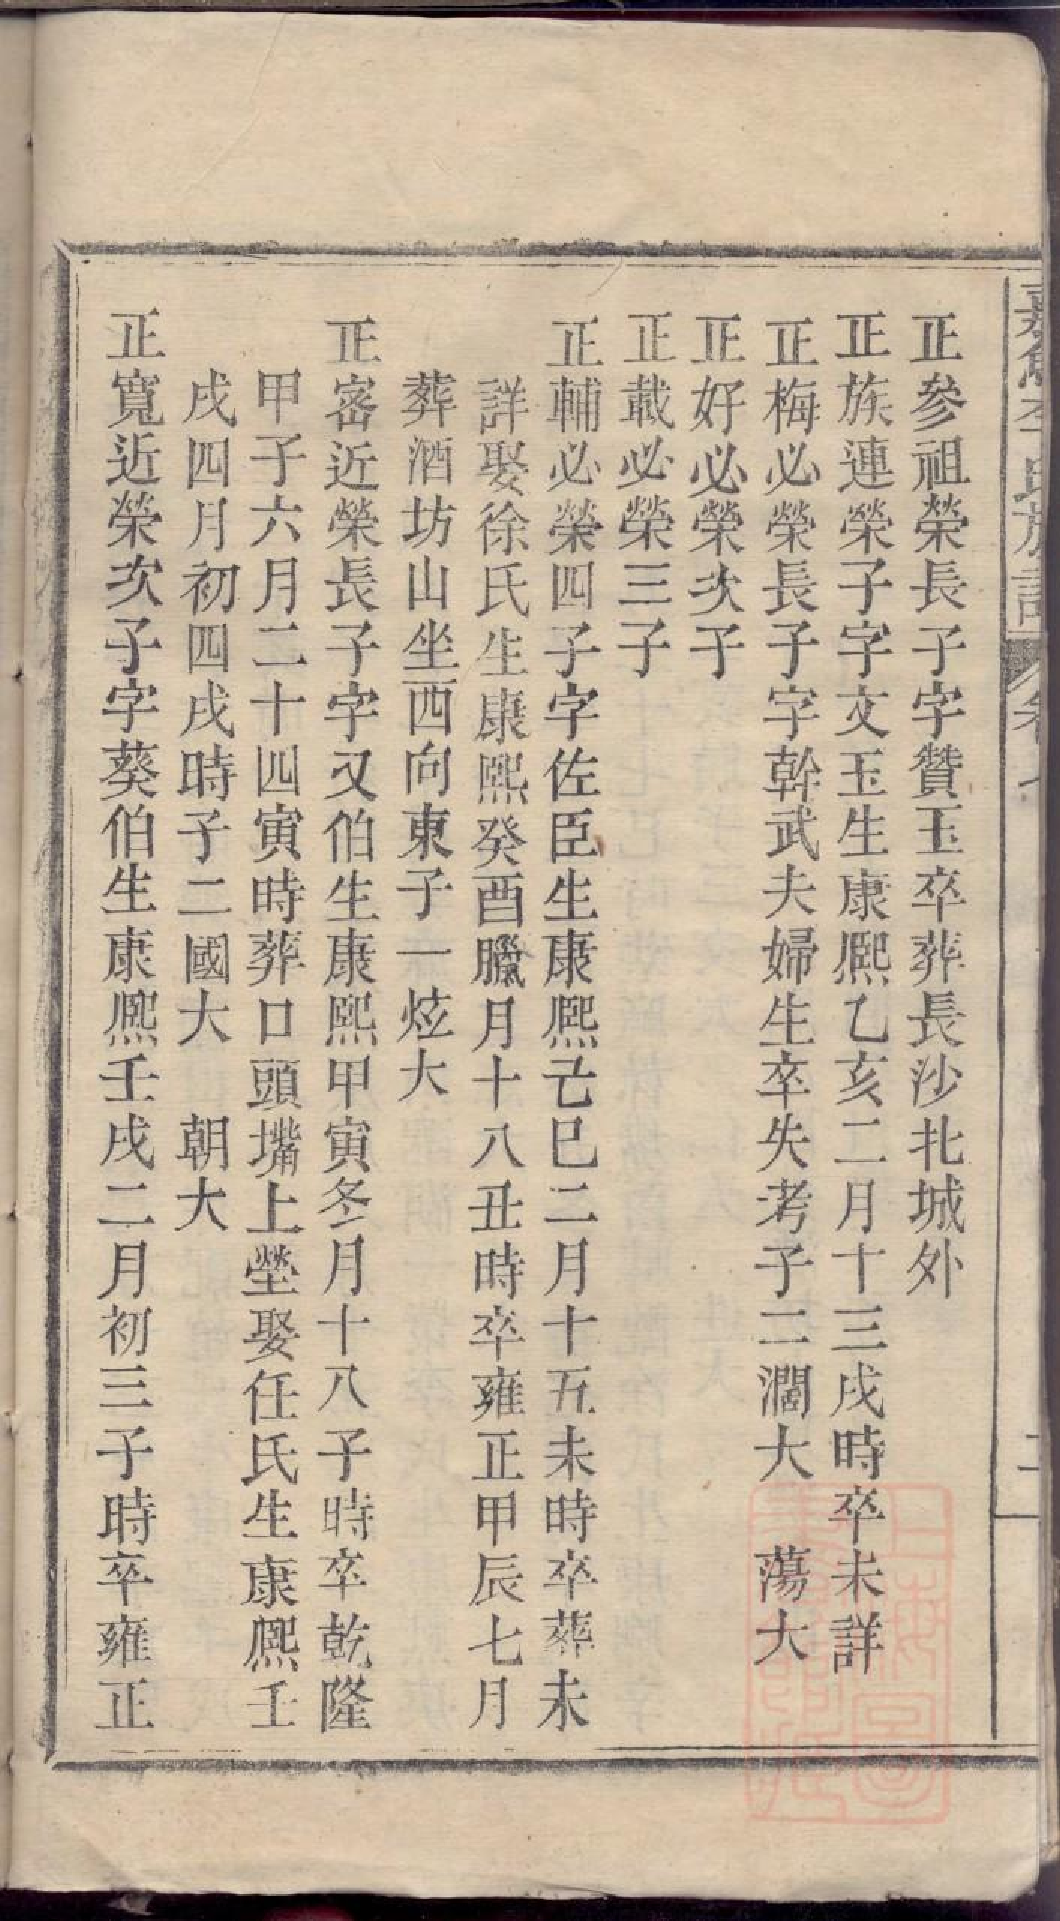 李氏族譜
正參祖榮長子字贊玉卒葬長沙北城外
正族連榮子字文玉生康熙乙亥二月十三戌時卒未詳
正梅必榮長子字幹武夫婦生卒失考子二濶大　蕩大
正好必榮次子
正載必榮三子
正輔必榮四子字佐臣生康熙己巳二月十五未時卒葬未
詳娶徐氏生康熙癸酉臘月十八丑時卒雍正甲辰七月
葬酒坊山坐西向東子一炫大
正密近榮長子字又伯生康熙甲寅冬月十八子時卒乾隆
甲子六月二十四寅時葬口頭嘴上塋娶任氏生康熙壬
戌四月初四戌時子二國大　朝大
正寬近榮次子字葵伯生康熙壬戌二月初三子時卒雍正